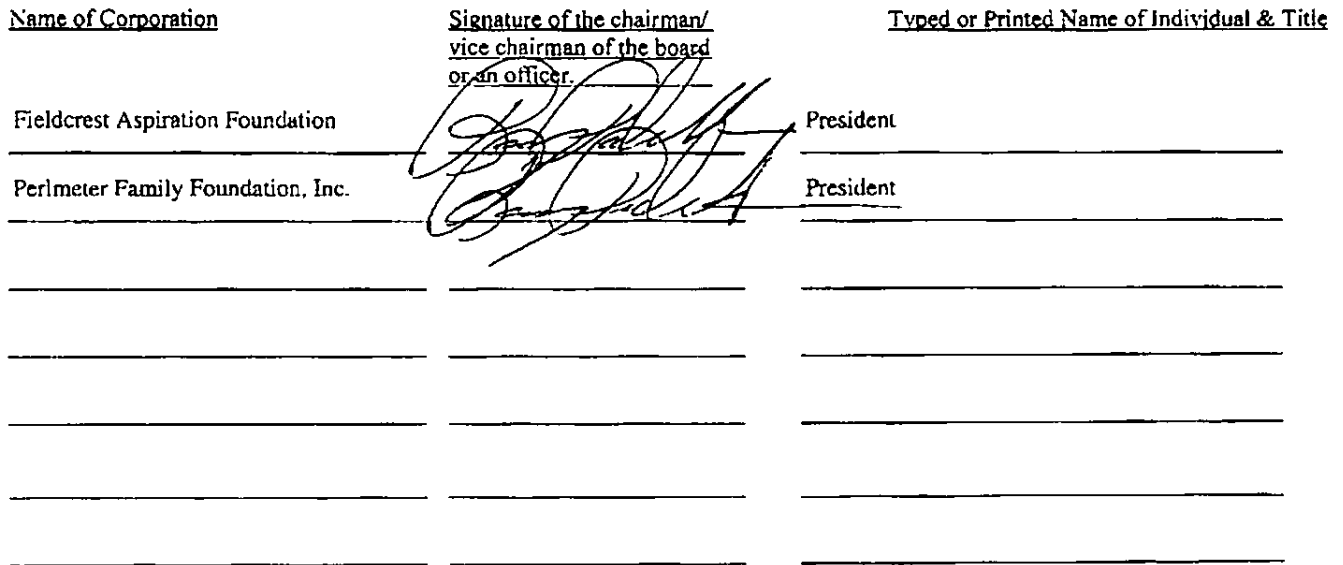 Name of Corporation
Signature of the chairman/
vice chairman of the board
or an officer.
Typed or Printed Name of Individual & Title
Fieldcrest Aspiration Foundation
President
Perlmeter Family Foundation, Inc.
President